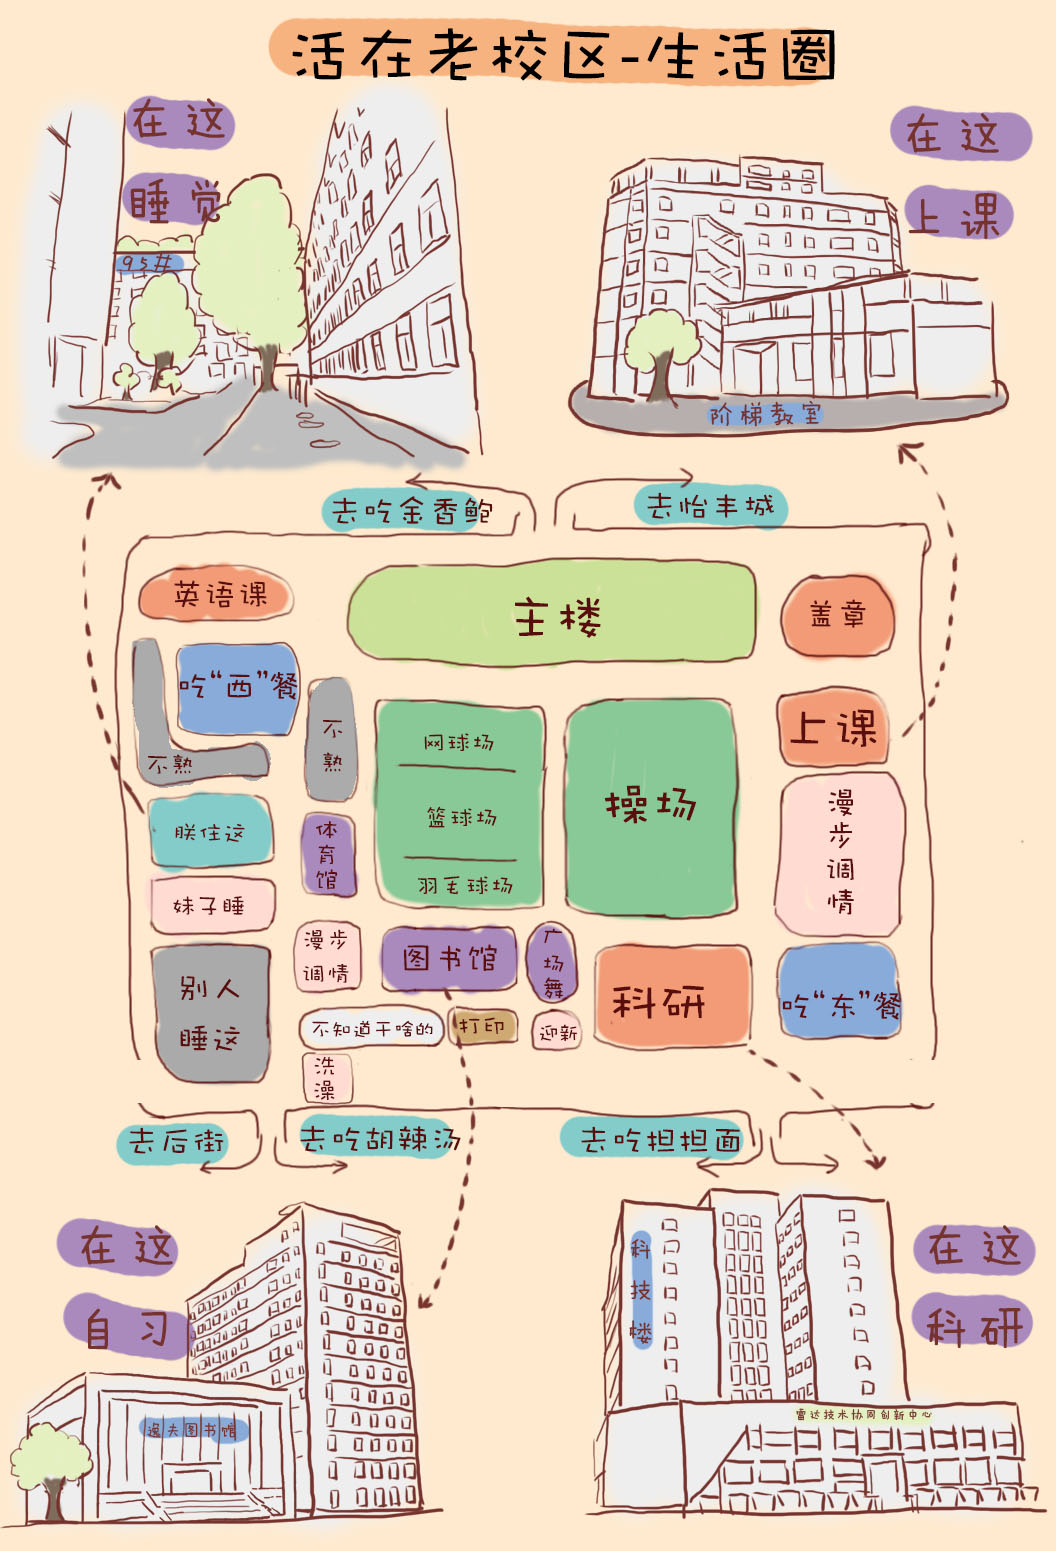 活在老校区-生活圈
在这
睡觉
95#
在这
上课
阶梯教室
去吃金香鲍
去怡丰城
英语课
主楼
盖章
吃“西”餐
不熟
不熟
网球场
篮球场
羽毛球场
操场
上课
漫步调情
朕住这
体育馆
妹子睡
漫步
调情
图书馆
广场舞
科研
吃“东”餐
别人
睡这
不知道干啥的
打印
迎新
洗澡
去后街
去吃胡辣汤
去吃担担面
在这
自习
逸夫图书馆
科技楼
在这
科研
雷达技术协同创新中心